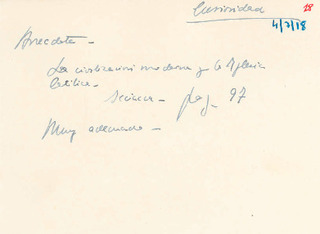 Curiosidad 18
4/7/18
Anecdota -
La civilizacion moderna y la Iglesia
Catolica -
pag 97
Muy adecuado -